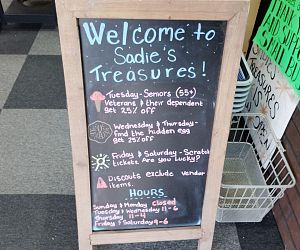 Welcome to
Sadie's
Treasures!
Tuesday - Seniors (55+)
Veterans & their dependent
get 25% off
Wednesday & Thursday -
find the hidden egg
get 25% off
Friday & Saturday - Scratch
tickets. Are you Lucky?
Discouts exclude vendor
items.
HOURS
Sunday & Monday closed
Tuesday & Wednesday 11-6
Thursday 11-6
Friday & Saturday 9-6
SADIE'S
TREASURES
OPEN